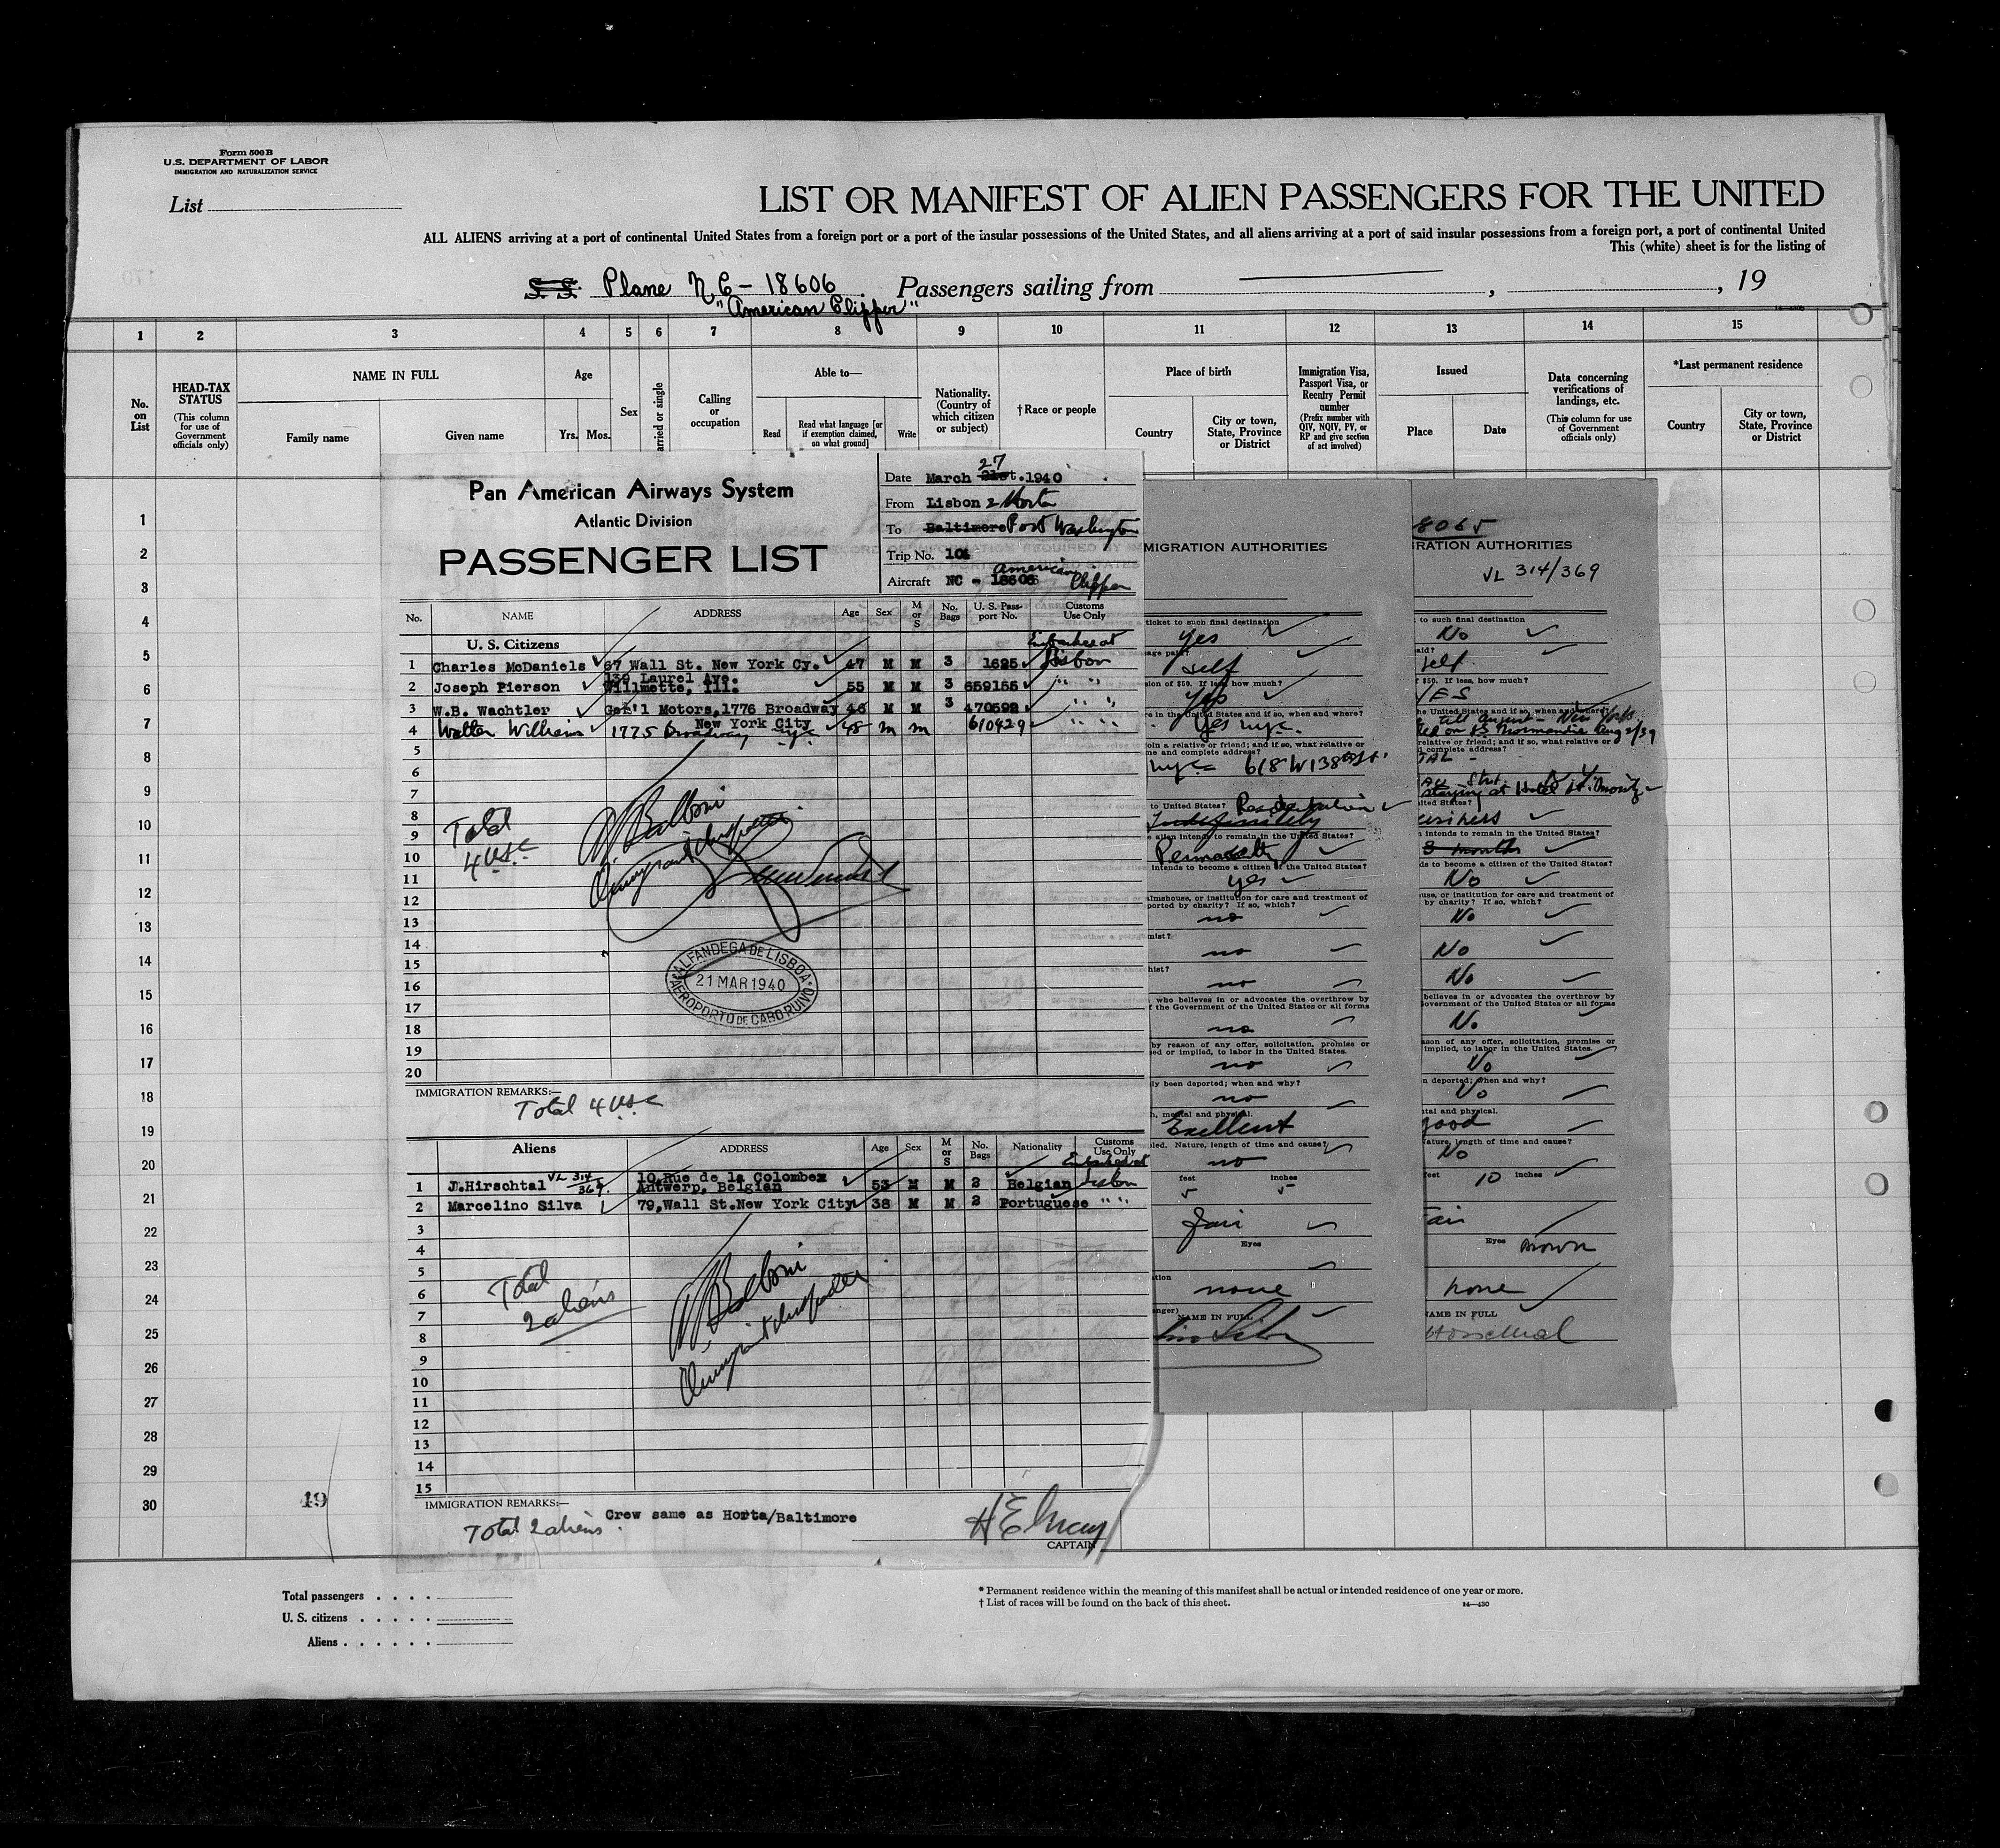 Form 500 B
U.S. DEPARTMENT OF LABOR
IMMIGRATION AND NATURALIZATION SERVICE
List
LIST OR MANIFEST OF ALIEN PASSENGERS FOR THE UNITED
ALL ALIENS arriving at a port of continental United States from a foreign port or a port of the insular possessions of the United States, and all aliens arriving at a port of said insular possessions from a foreign port, a port of continental United
This (white) sheet is for the listing of
S. S. Plane NC-18606 Passengers sailing from , , 19
"American Clipper"
1 2 3 4 5 6 7 8 9 10 11 12 13 14 15
No. on List
HEAD-TAX STATUS
(This column for use of Government officials only)
NAME IN FULL
Family name Given name
Age
Yrs. Mos.
Sex
Married or single
Calling or occupation
Able to—
Read
Read what language [or if exemption claimed, on what ground]
Write
Nationality. (Country of which citizen or subject)
†Race or people
Place of birth
Country
City or town, State, Province or District
Immigration Visa, Passport Visa, or Reentry Permit number
(Prefix number with QIV, NQIV, PV, or RP and give section of act involved)
Issued
Place Date
Data concerning verifications of landings, etc.
(This column for use of Government officials only)
*Last permanent residence
Country
City or town, State, Province or District
1
2
3
4
5
6
7
8
9
10
11
12
13
14
15
16
17
18
19
20
21
22
23
24
25
26
27
28
29
30
19
Pan American Airways System
Atlantic Division
PASSENGER LIST
Date March 21st. 27 1940
From Lisbon & Horta
To Baltimore Port Washington
Trip No. 101
Aircraft NC - 18606 American Clipper
No. NAME ADDRESS Age Sex M or S No. Bags U. S. Passport No. Customs Use Only
U. S. Citizens Embarked at
1 Charles McDaniels 67 Wall St. New York Cy. 47 M M 3 1625 Lisbon
2 Joseph Pierson 139 Laurel Ave. Willmette, Ill. 55 M M 3 659155 " "
3 W.B. Wachtler Gen'l Motors,1776 Broadway New York City 46 M M 3 470592 " "
4 Walter Williams 1775 Broadway nyc 48 m m 610429 " "
5
6
7
8
9
10
11
12
13
14
15
16
17
18
19
20
Total
4 USC
ALFANDEGA DE LISBOA
21 MAR 1940
AEROPORTO DE CABO RUIVO
IMMIGRATION REMARKS:—
Total 4 USC
Aliens ADDRESS Age Sex M or S No. Bags Nationality Customs Use Only
Embarked at
1 J.Hirschtal VL 314/369 10,Rue de la Colombex Antwerp, Belgian 53 M M 2 Belgian Lisbon
2 Marcelino Silva 79,Wall St.New York City 38 M M 2 Portuguese " "
3
4
5
6
7
8
9
10
11
12
13
14
15
Total
2 aliens
IMMIGRATION REMARKS:—
Total 2 aliens. Crew same as Horta/Baltimore
CAPTAIN
MIGRATION AUTHORITIES
ticket to such final destination
Yes
self
sion of $50. If less, how much?
Yes
re in the United States and if so, when and where?
Yes nyc
join a relative or friend; and if so, what relative or
me and complete address?
nyc 618 W 138th St.
to United States?
Indefinitely
e alien intends to remain in the United States?
Permanently
intends to become a citizen of the United States?
yes
almshouse, or institution for care and treatment of
ported by charity? If so, which?
no
mist?
no
hist?
no
who believes in or advocates the overthrow by
f the Government of the United States or all forms
no
by reason of any offer, solicitation, promise or
sed or implied, to labor in the United States.
no
ly been deported; when and why?
no
h, mental and physical.
Excellent
led. Nature, length of time and cause?
no
feet inches
5 5
fair
Eyes
none
NAME IN FULL
8065
RATION AUTHORITIES
VL 314/369
t to such final destination
No
aid?
self
f $50. If less, how much?
YES
he United States and if so, when and where?
till August - New York
on SS Normandie Aug 2/39
relative or friend; and if so, what relative or
complete address?
staying at Hotel St. Moritz
ited States?
business
n intends to remain in the United States?
3 months
ds to become a citizen of the United States?
No
use, or institution for care and treatment of
by charity? If so, which?
No
No
No
believes in or advocates the overthrow by
overnment of the United States or all forms
No
ason of any offer, solicitation, promise or
implied, to labor in the United States.
No
n deported; when and why?
No
ntal and physical.
good
ature, length of time and cause?
No
feet 10 inches
Fair
Eyes Brown
none
NAME IN FULL
Total passengers . . . .
U. S. citizens . . . . .
Aliens . . . . . .
* Permanent residence within the meaning of this manifest shall be actual or intended residence of one year or more.
† List of races will be found on the back of this sheet.
14—430